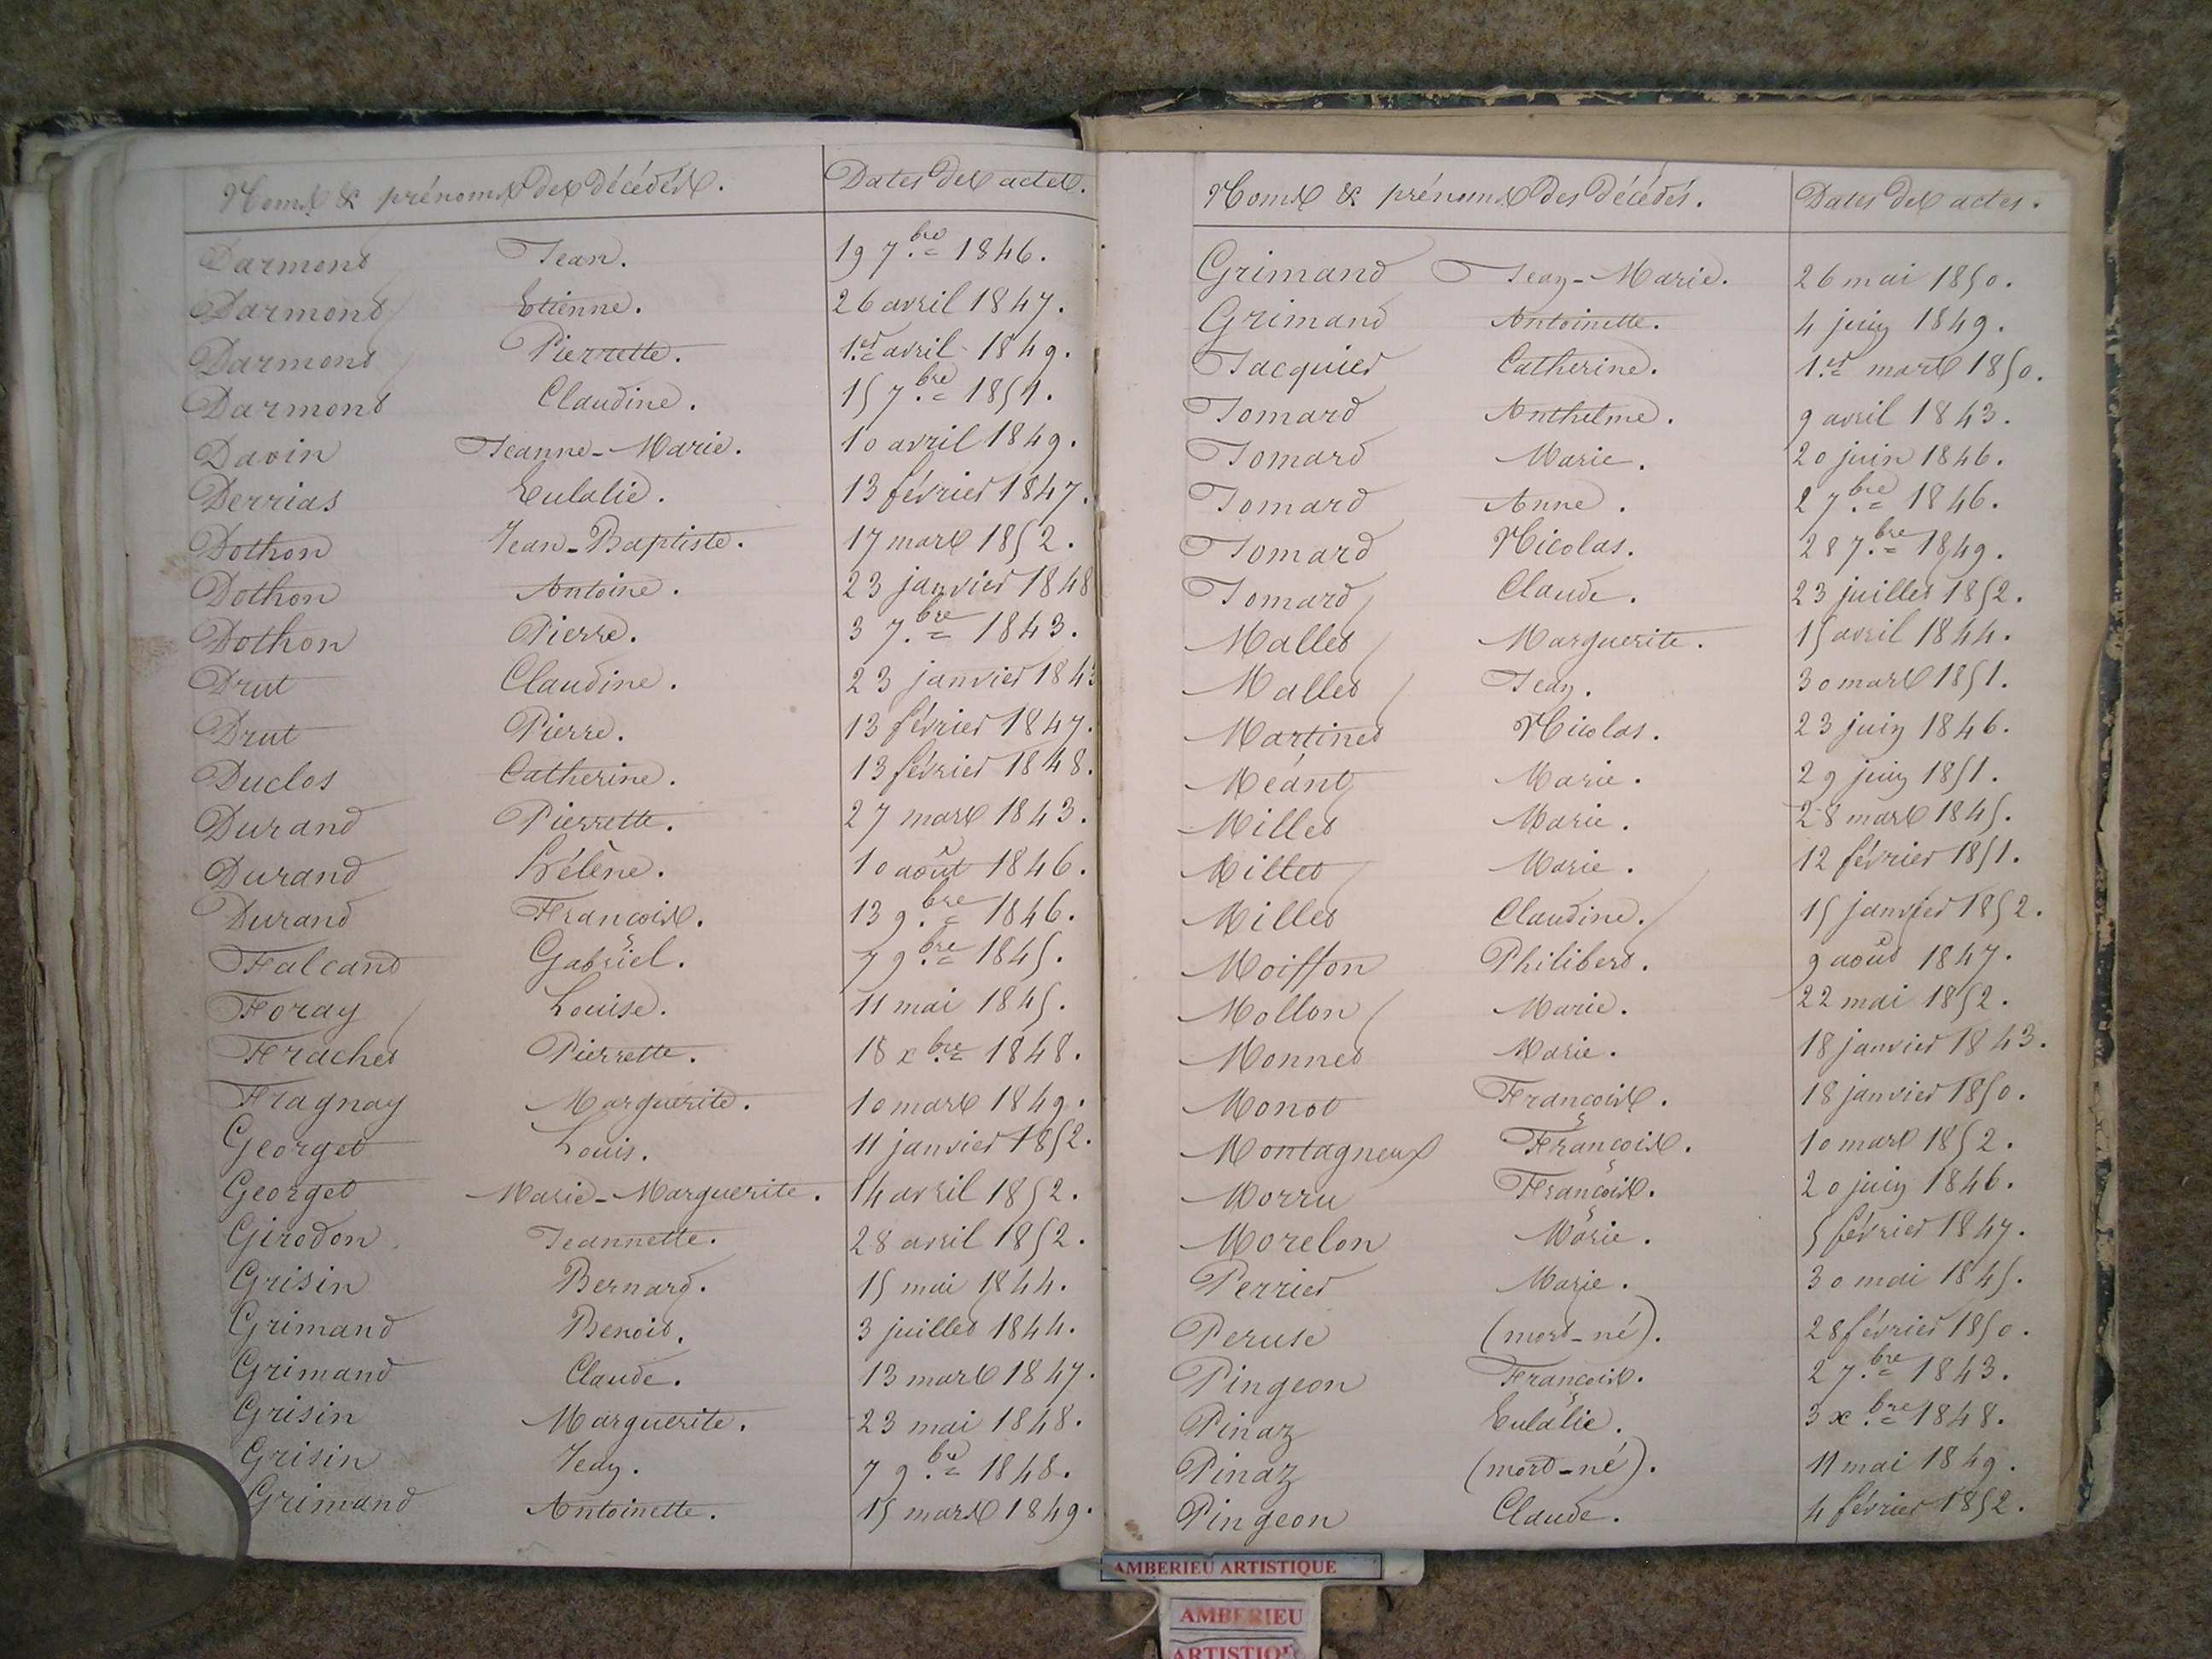 Noms & prénoms des décédés. Dates des actes.
Darmond Jean. 19 7.bre 1846.
Darmond Etienne. 26 avril 1847.
Darmond Pierrette. 1.er avril 1849.
Darmond Claudine. 15 7.bre 1851.
Davin Jeanne-Marie. 10 avril 1849.
Derrias Eulalie. 13 février 1847.
Dothon Jean-Baptiste. 17 mars 1852.
Dothon Antoine. 23 janvier 1848
Dothon Pierre. 3 7.bre 1843.
Drut Claudine. 23 janvier 1843
Drut Pierre. 13 février 1847.
Duclos Catherine. 13 février 1848.
Durand Pierrette. 27 mars 1843.
Durand Hélène. 10 août 1846.
Durand François. 13 9.bre 1846.
Falcand Gabriel. 7 9.bre 1845.
Foray Louise. 11 mai 1845.
Frachet Pierrette. 18 x.bre 1848.
Fragnay Marguerite. 10 mars 1849.
Georget Louis. 11 janvier 1852.
Georget Marie-Marguerite. 14 avril 1852.
Girodon Jeannette. 28 avril 1852.
Grisin Bernard. 15 mai 1844.
Grimand Benoit. 3 juillet 1844.
Grimand Claude. 13 mars 1847.
Grisin Marguerite. 23 mai 1848.
Grisin Jean. 7 9.bre 1848.
Grimand Antoinette. 15 mars 1849.
Noms & prénoms des décédés. Dates des actes.
Grimand Jean-Marie. 26 mai 1850.
Grimand Antoinette. 4 juin 1849.
Jacquier Catherine. 1.er mars 1850.
Jomard Anthelme. 9 avril 1843.
Jomard Marie. 20 juin 1846.
Jomard Anne. 2 7.bre 1846.
Jomard Nicolas. 28 7.bre 1849.
Jomard Claude. 23 juillet 1852.
Mallet Marguerite. 15 avril 1844.
Mallet Jean. 30 mars 1851.
Martinet Nicolas. 23 juin 1846.
Méant Marie. 29 juin 1851.
Millet Marie. 28 mars 1845.
Millet Marie. 12 février 1851.
Millet Claudine. 15 janvier 1852.
Moiffon Philibert. 9 août 1847.
Mollon Marie. 22 mai 1852.
Monnet Marie. 18 janvier 1843.
Monot François. 18 janvier 1850.
Montagneux François. 10 mars 1852.
Morru François. 20 juin 1846.
Morelon Marie. 5 février 1847.
Perrier Marie. 30 mai 1845.
Peruse (mort-né). 28 février 1850.
Pingeon François. 2 7.bre 1843.
Pinaz Eulalie. 3 x.bre 1848.
Pinaz (mort-né). 11 mai 1849.
Pingeon Claude. 4 février 1852.
AMBERIEU ARTISTIQUE
AMBERIEU